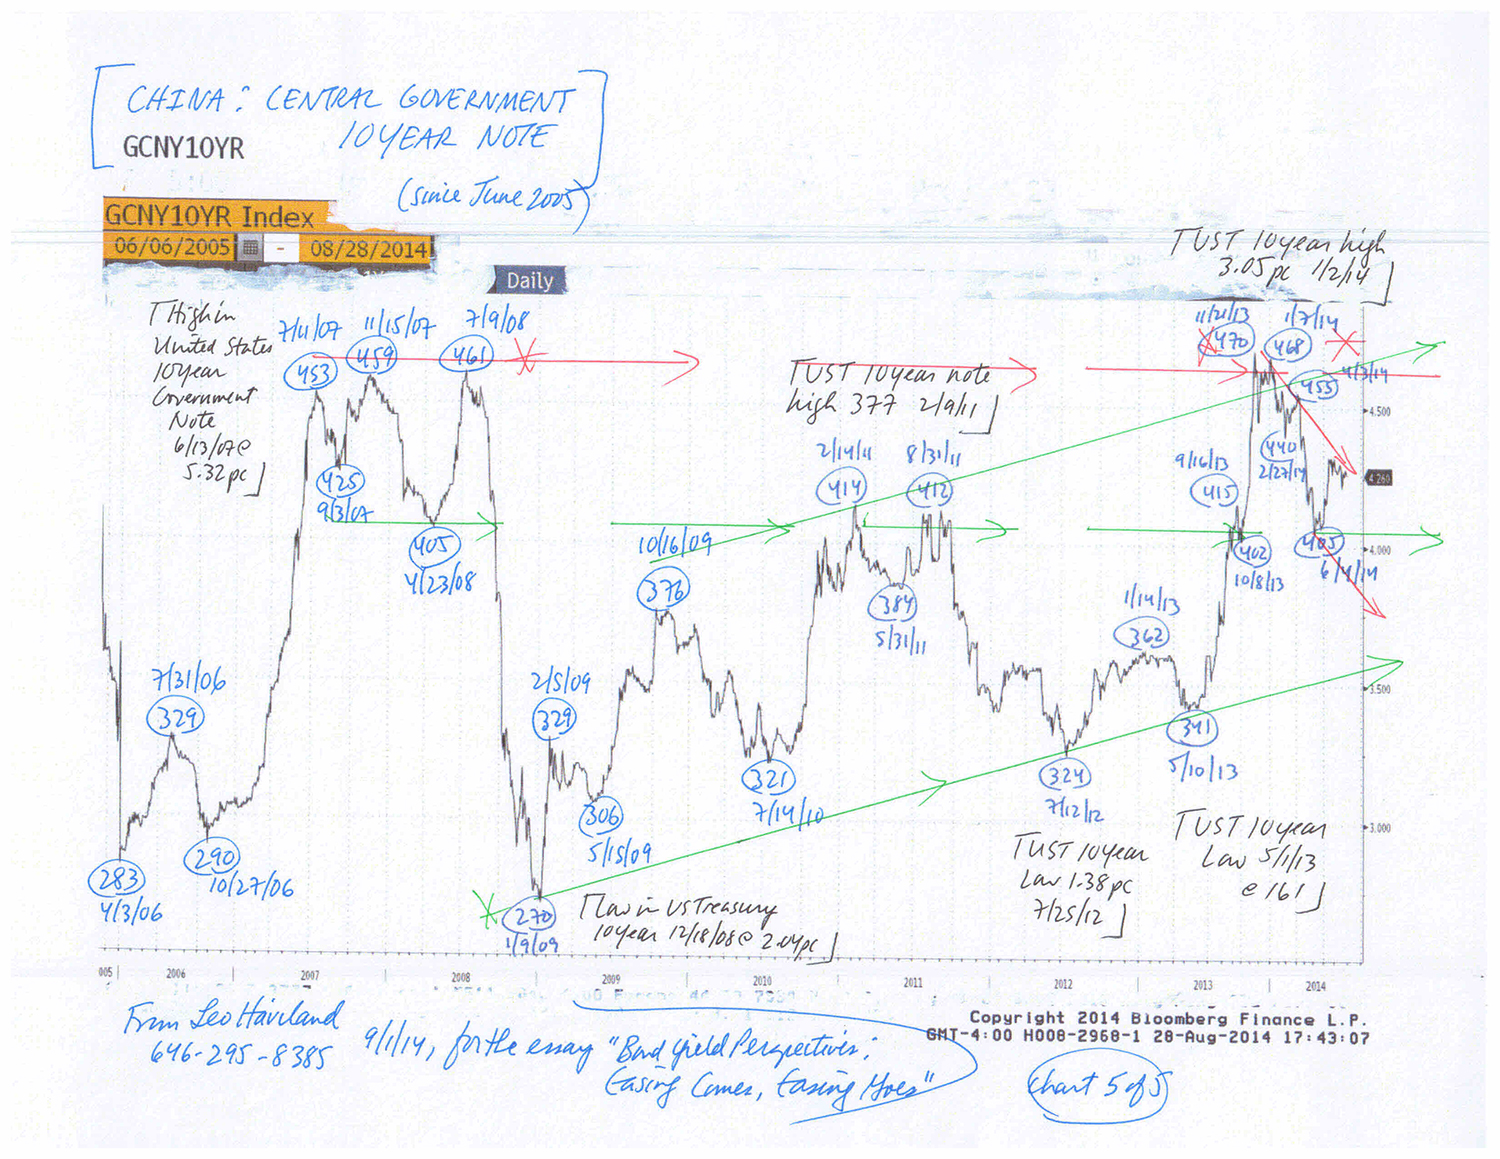 CHINA: CENTRAL GOVERNMENT
10 YEAR NOTE
GCNY10YR
(since June 2005)
GCNY10YR Index
06/06/2005 - 08/28/2014
Daily
UST 10 year high
3.05 pc 1/2/14
High in
United States
10 year
Government
Note
6/13/07 @
5.32 pc
7/11/07
453
11/15/07
459
7/9/08
461
425
9/3/07
405
4/23/08
UST 10 year note
high 377 2/9/11
11/21/13
470
1/7/14
468
455
4/3/14
440
2/27/14
2/14/11
414
8/31/11
412
9/16/13
415
402
10/8/13
405
6/4/14
10/16/09
376
384
5/31/11
1/14/13
362
7/31/06
329
2/5/09
329
306
5/15/09
321
7/14/10
324
7/12/12
341
5/10/13
283
4/3/06
290
10/27/06
270
1/9/09
Low in US Treasury
10 year 12/18/08 @ 2.04 pc
UST 10 year
Low 1.38 pc
7/25/12
UST 10 year
Low 5/1/13
@ 161
4.500
4.260
4.000
3.500
3.000
005 2006 2007 2008 2009 2010 2011 2012 2013 2014
Copyright 2014 Bloomberg Finance L.P.
GMT-4:00 H008-2968-1 28-Aug-2014 17:43:07
From Leo Haviland
646-295-8385
9/1/14, for the essay "Bond Yield Perspectives:
Easing Comes, Easing Goes"
Chart 5 of 5